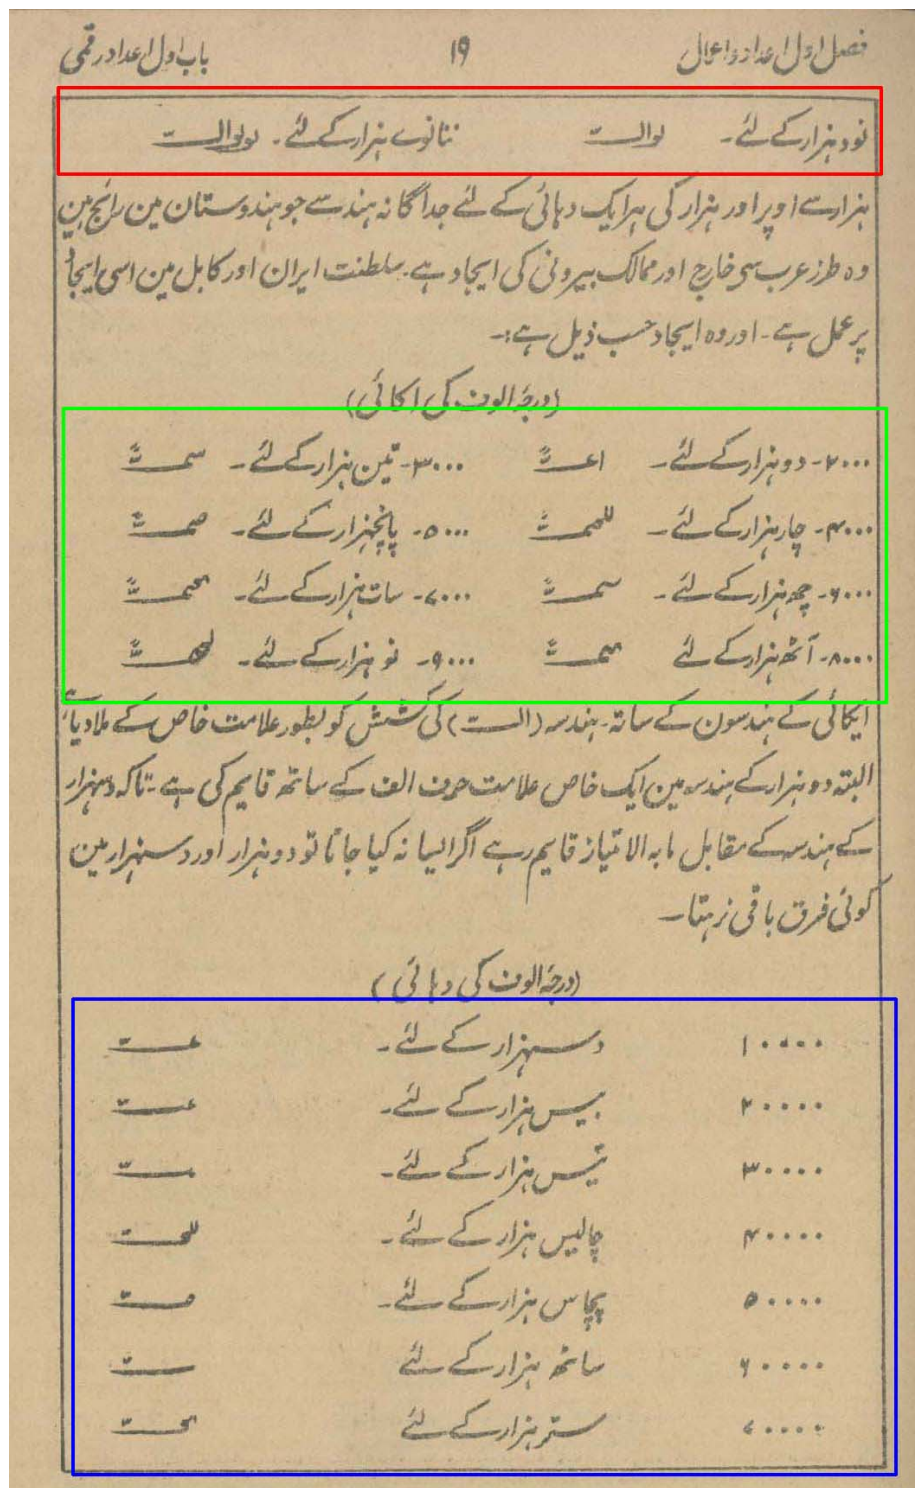 فصل اول اعداد و اعمال ۱۹ باب اول اعداد رقمی
نود ہزار کے لئے۔ نوالت ننانوے ہزار کے لئے۔
ہزار سے اوپر اور ہزار کی ہر ایک دہائی کے لئے جداگانہ ہندسے جو ہندوستان مین رائج ہین
وہ طرز عرب سی خارج اور ممالک بیرونی کی ایجاد ہے۔ سلطنت ایران اور کابل مین اسی ایجاد
پر عمل ہے۔ اور وہ ایجاد حسب ذیل ہے:۔
(درجۂ الوف کی اکائی)
۲۰۰۰۔ دو ہزار کے لئے۔ ۳۰۰۰۔ تین ہزار کے لئے۔
۴۰۰۰۔ چار ہزار کے لئے۔ ۵۰۰۰۔ پانچہزار کے لئے۔
۶۰۰۰۔ چھ ہزار کے لئے۔ ۷۰۰۰۔ سات ہزار کے لئے۔
۸۰۰۰۔ آٹھ ہزار کے لئے ۹۰۰۰۔ نو ہزار کے لئے۔
ایکائی کے ہندسون کے ساتہ۔ ہندسہ (الت) کی کشش کو بطور علامت خاص کے ملا دیا ہے
البتہ دو ہزار کے ہندسہ مین ایک خاص علامت حرف الف کے ساتھ قایم کی ہے۔ تاکہ دسہزار
کے ہندسہ کے مقابل مابہ الامتیاز قایم رہے اگر ایسا نہ کیا جاتا تو دو ہزار اور دسہزار مین
کوئی فرق باقی نرہتا۔
(درجۂ الوف کی دہائی)
۱۰۰۰۰ دسہزار کے لئے۔
۲۰۰۰۰ بیس ہزار کے لئے۔
۳۰۰۰۰ تیس ہزار کے لئے۔
۴۰۰۰۰ چالیس ہزار کے لئے۔
۵۰۰۰۰ پچاس ہزار کے لئے۔
۶۰۰۰۰ ساٹھ ہزار کے لئے
۷۰۰۰۰ ستر ہزار کے لئے